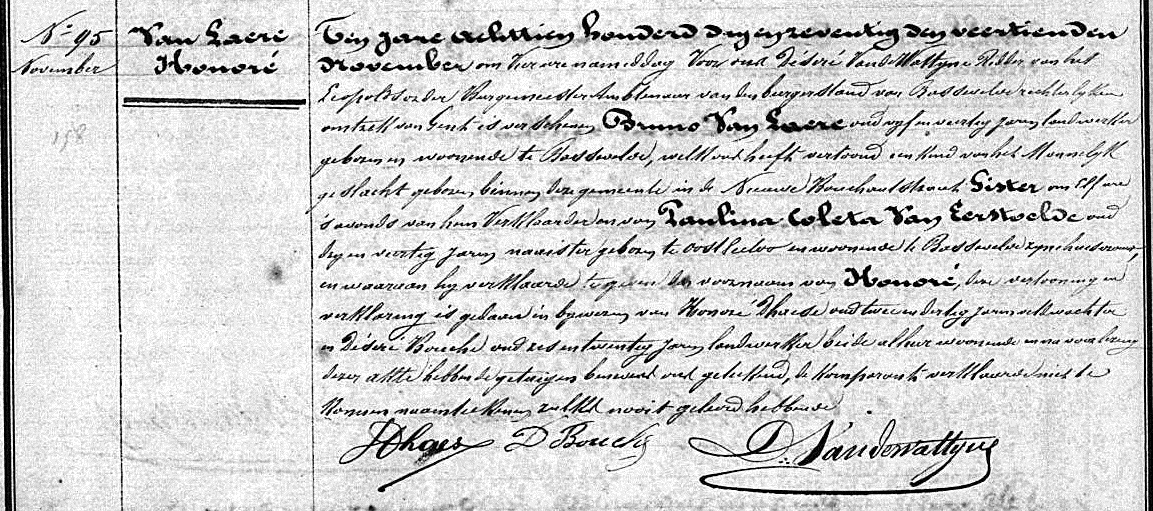 N.º 95
November
158
Van Laere
Honoré
Ten jare achttien honderd dryenzeventig den veertienden
November om vier ure namiddag Voor ons Désiré Vande Wattyne Ridder van het
Leopolds order Burgemeester Ambtenaar van den burgerstand van Bassevelde rechterlyken
omtrek van Gent is verschenen Bruno Van Laere oud vyf en veertig jaren landwerker
geboren en woonende te Bassevelde, welke ons heeft vertoond een kind van het Mannelyk
geslacht geboren binnen deze gemeente in de Nieuwe Bouchoutstraat Gister om Elf ure
's avonds van hem Verklaarder en van Paulina Coleta Van Eerdvelde oud
dry en veertig jaren naaister geboren te Oosteeloo en woonende te Bassevelde zyne huisvrouw,
en waaraan hy verklaarde te geven den voornaam van Honoré, deze vertooning en
verklaring is gedaan in bywezen van Honoré Dhaese oud twee en dertig jaren veldwachter
en Désiré Bouche oud zes en twentig jaren landwerker beide alhier woonende en na voorlezing
dezer akte hebben de getuigen benevens ons geteekend, de Komparant verklaarde niet te
Konnen naamteekenen zulks nooit geleerd hebbende
DHaes D Bouche D. Vandewattyne